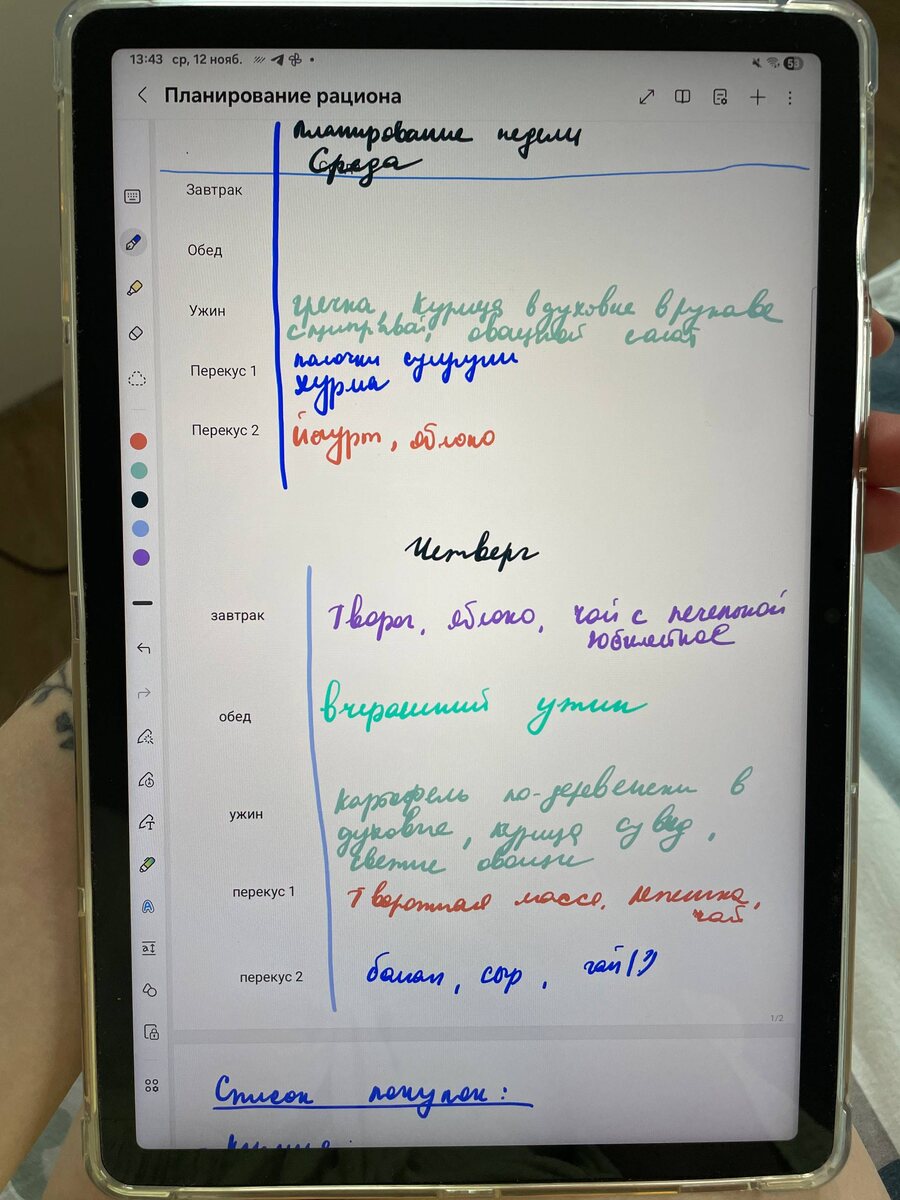 13:43 ср, 12 нояб.
53
Планирование рациона
Планирование недели
Среда
Завтрак
Обед
Ужин
гречка, курица в духовке в рукаве
с приправой, овощной салат
Перекус 1
палочки сулугуни
хурма
Перекус 2
йогурт, яблоко
Четверг
завтрак
творог, яблоко, чай с печенькой
юбилейное
обед
вчерашний ужин
ужин
картофель по-деревенски в
духовке, курица су вид,
свежие овощи
перекус 1
творожная масса, лепешка,
чай
перекус 2
банан, сыр, чай (?)
1/2
Список покупок: